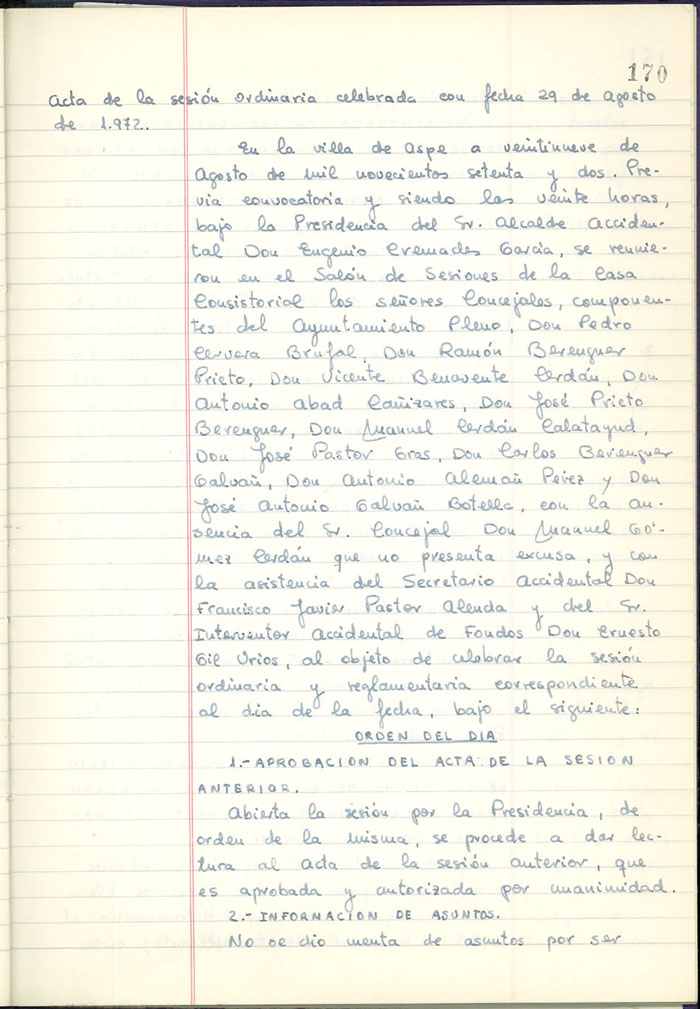 170
Acta de la sesión ordinaria celebrada con fecha 29 de Agosto
de 1.972.
En la villa de Aspe a veintinueve de
Agosto de mil novecientos setenta y dos. Pre-
via convocatoria y siendo las veinte horas,
bajo la Presidencia del Sr. Alcalde Acciden-
tal Don Eugenio Cremades Garcia, se reunie-
ron en el Salón de Sesiones de la Casa
Consistorial los señores Concejales, componen-
tes del Ayuntamiento Pleno, Don Pedro
Cervera Brufal, Don Ramón Berenguer
Prieto, Don Vicente Benavente Cerdán, Don
Antonio Abad Cañizares, Don José Prieto
Berenguer, Don Manuel Cerdán Calatayud,
Don José Pastor Gras, Don Carlos Berenguer
Galvañ, Don Antonio Alemañ Pérez y Don
José Antonio Galvañ Botella, con la au-
sencia del Sr. Concejal Don Manuel Gó-
mez Cerdán que no presenta excusa, y con
la asistencia del Secretario Accidental Don
Francisco Javier Pastor Alenda y del Sr.
Interventor Accidental de Fondos Don Ernesto
Gil Urios, al objeto de celebrar la sesión
ordinaria y reglamentaria correspondiente
al dia de la fecha, bajo el siguiente:
ORDEN DEL DIA
1.- APROBACION DEL ACTA DE LA SESION
ANTERIOR.
Abierta la sesión por la Presidencia, de
orden de la misma, se procede a dar lec-
tura al acta de la sesión anterior, que
es aprobada y autorizada por unanimidad.
2.- INFORNACION DE ASUNTOS.
No se dio cuenta de asuntos por ser